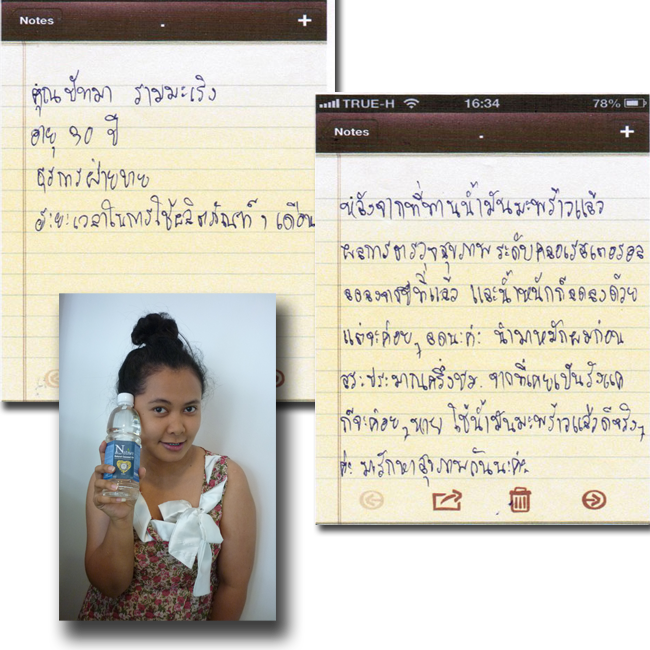 Notes
+
คุณปัทมา รามมะเริง
อายุ 30 ปี
ธุรการฝ่ายขาย
ระยะเวลาในการใช้ผลิตภัณฑ์ 1 เดือน
TRUE-H
16:34
78%
Notes
+
หลังจากที่ทานน้ำมันมะพร้าวแล้ว
ผลการตรวจสุขภาพระดับคลอเรสเตอรอล
ลดลงจากปีที่แล้ว และน้ำหนักก็ลดลงด้วย
แต่จะค่อยๆ ลดนะค่ะ นำมาหมักผมก่อน
สระประมาณครึ่งชม. จากที่เคยเป็นรังแค
ก็จะค่อยๆ หาย ใช้น้ำมันมะพร้าวแล้วดีจริงๆ
ค่ะ มารักษาสุขภาพกันนะค่ะ
N